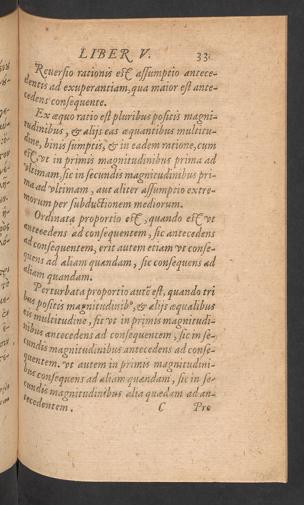 LIBER V. 33
Reuersio rationis est assumptio antece-
dentis ad exuperantiam, qua maior est ante-
cedens consequente.
Ex æquo ratio est pluribus positis magni-
tudinibus, & alijs eas æquantibus multitu-
dine, binis sumptis, & in eadem ratione, cum
est, vt in primis magnitudinibus prima ad
vltimam, sic in secundis magnitudinibus pri-
ma ad vltimam, aut aliter assumptio extre-
morum per subductionem mediorum.
Ordinata proportio est, quando est vt
antecedens ad consequentem, sic antecedens
ad consequentem, erit autem etiam vt conse-
quens ad aliam quandam, sic consequens ad
aliam quandam.
Perturbata proportio autē est, quando tri
bus positis magnitudinibꝰ, & alijs æqualibus
eis multitudine, sic vt in primis magnitudi-
nibus antecedens ad consequentem, sic in se-
cundis magnitudinibus antecedens ad conse-
quentem. vt autem in primis magnitudini-
bus consequens ad aliam quandam, sic in se-
cundis magnitudinibus alia quædam ad an-
tecedentem. C Pro